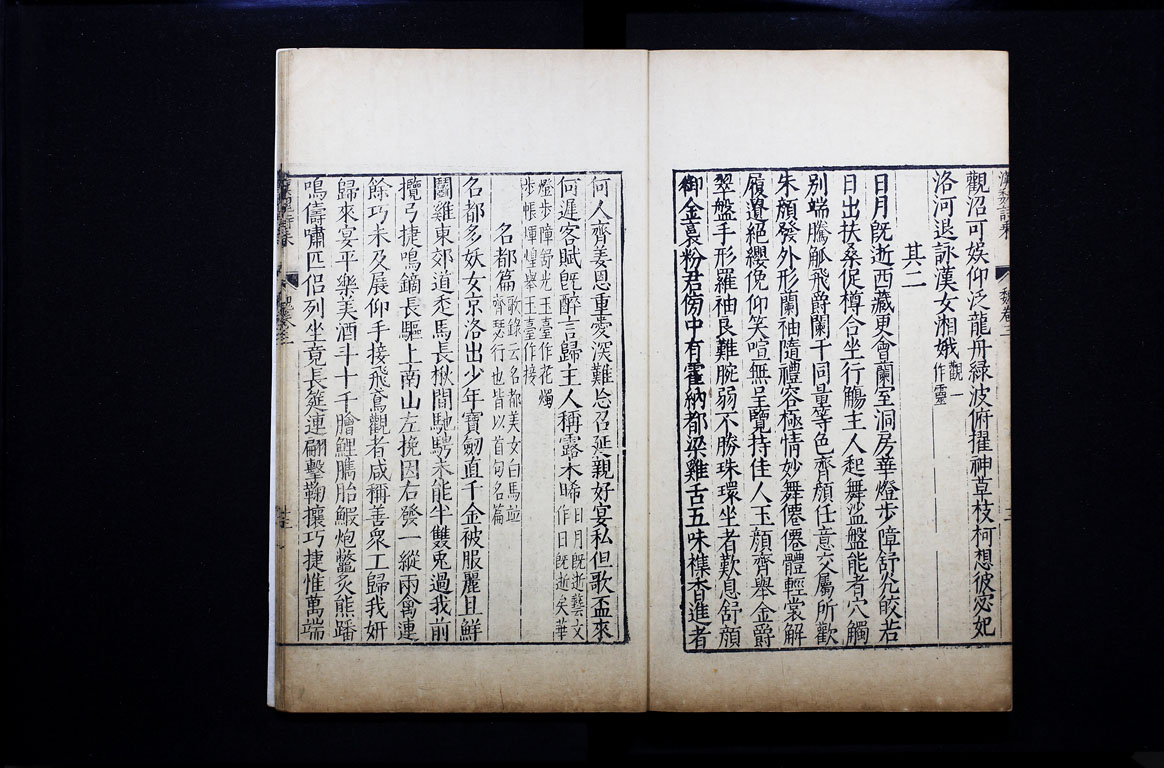 觀沼可娛仰泛龍舟緑波俯擢神草枝柯想彼宓妃
洛河退詠漢女湘娥觀一作靈
其二
日月旣逝西藏更會蘭室洞房華燈步障舒光皎若
日出扶桑促樽合坐行觴主人起舞盤能者穴觸
別端騰觚飛爵闌干同量等色齊顔任意交屬所歡
朱顔發外形蘭袖隨禮容極情妙舞僊僊體輕裳解
履遺絕纓俛仰笑喧無呈覽持佳人玉顔齊舉金爵
翠盤手形羅袖良難腕弱不勝珠環坐者歎息舒顔
御金裏粉君傍中有霍納都梁雞舌五味雜香進者
何人齊姜恩重愛深難忘召延親好宴私但歌盃來
何遲客賦旣醉言歸主人稱露未晞日月旣逝藝文作日旣逝矣華
燈步障舒光玉臺作花燭步帳煇煌擧玉臺作接
名都篇歌錄云名都美女白馬並齊瑟行也皆以首句名篇
名都多妖女京洛出少年寶劒直千金被服麗且鮮
鬬雞東郊道走馬長楸間馳騁未能半雙兎過我前
攬弓捷鳴鏑長驅上南山左挽因右發一縱兩禽連
餘巧未及展仰手接飛鳶觀者咸稱善衆工歸我妍
歸來宴平樂美酒斗十千膾鯉臇胎鰕炮鼈炙熊蹯
鳴儔嘯匹侶列坐竟長筵連翩擊鞠攘巧捷惟萬端